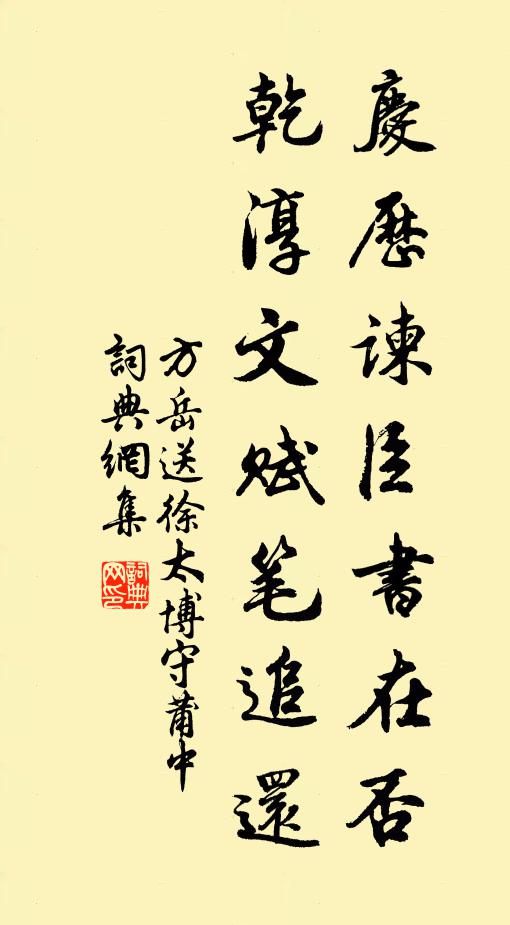 慶歷諫臣書在否
乾淳文賦笔追還
方岳送徐太博守莆中
詞典網集
詞典网印